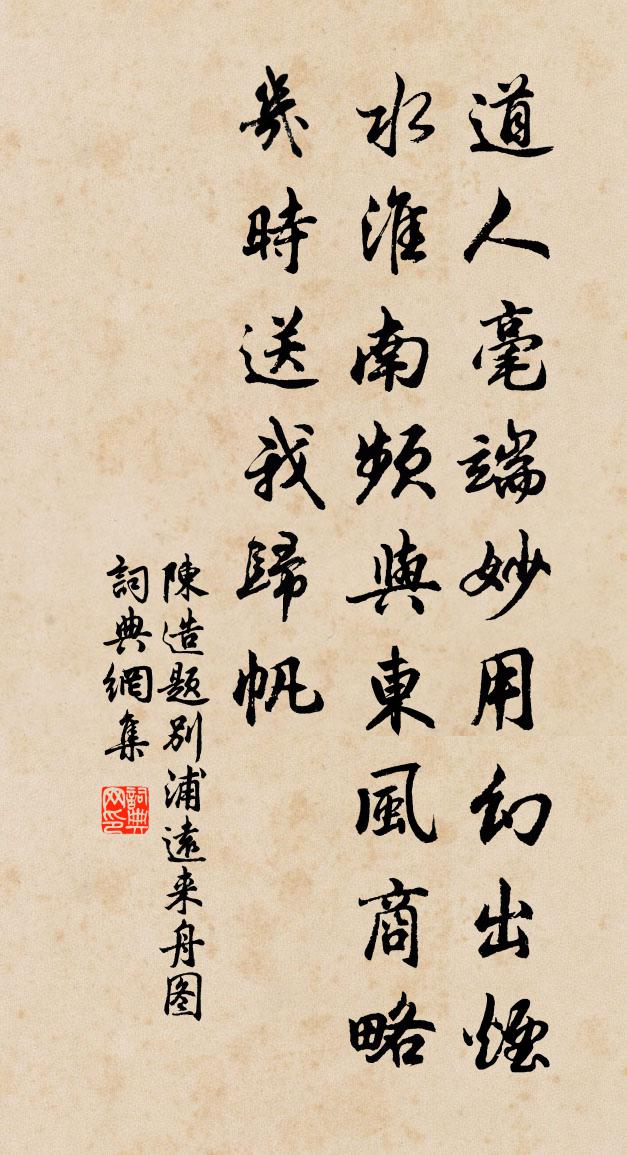 道人毫端妙用幻出煙
水淮南頻與東風商略
幾時送我歸帆
陳造題別浦遠来舟图
詞典網集
詞典网印